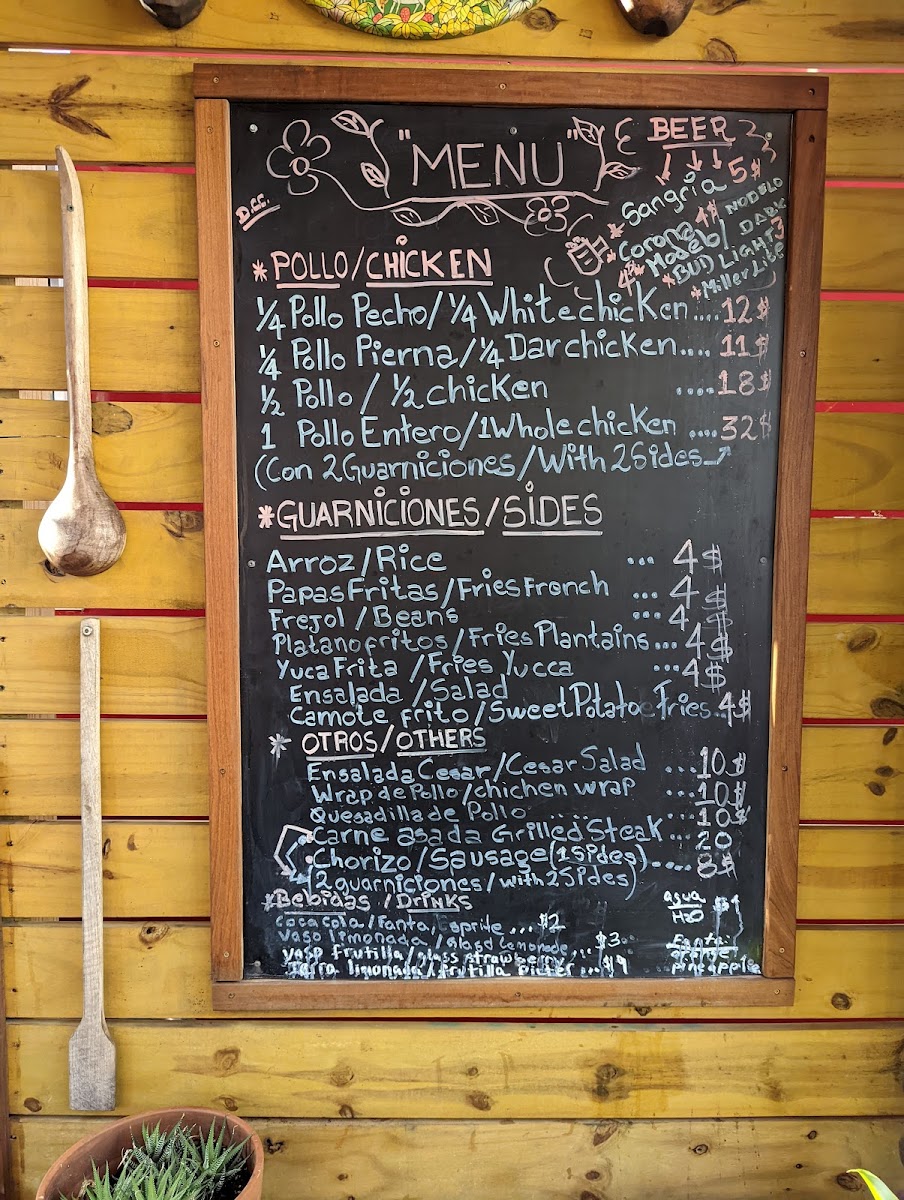 "MENU"
D.C.C.
BEER
5$
* Sangria
* Corona 4$
Modelo
NODELO
DARK
4$
* BUD LIGHT 3
* Miller Lite
* POLLO/CHICKEN
1/4 Pollo Pecho/1/4 Whitechicken.... 12$
1/4 Pollo Pierna/1/4 Darchicken.... 11$
1/2 Pollo / 1/2 chicken .... 18$
1 Pollo Entero/1Whole chicken .... 32$
(Con 2Guarniciones/With 2Sides
* GUARNICIONES/SIDES
Arroz/Rice ... 4$
Papas Fritas/Fries French ... 4$
Frejol/Beans ... 4$
Platanofritos/Fries Plantains... 4$
Yuca Frita /Fries Yucca ... 4$
Ensalada /Salad
Camote frito/Sweet Potatoe Fries.. 4$
* OTROS/OTHERS
Ensalada Cesar/Cesar Salad ... 10$
Wrap de Pollo/chichen wrap ... 10$
Quesadilla de Pollo ... 10$
Carne asada Grilled Steak ... 20
Chorizo/Sausage (1Sides).... 8$
(2 guarniciones/with 2Sides)
* Bebidas /Drinks
coca cola/Fanta, sprite ... $2
vaso limonada/glasd lemonade... $3
vaso frutilla/glass strawberry
Jarra limonada/frutilla picter ... $9
agua $1
H2O
Fanta
orange
pineapple